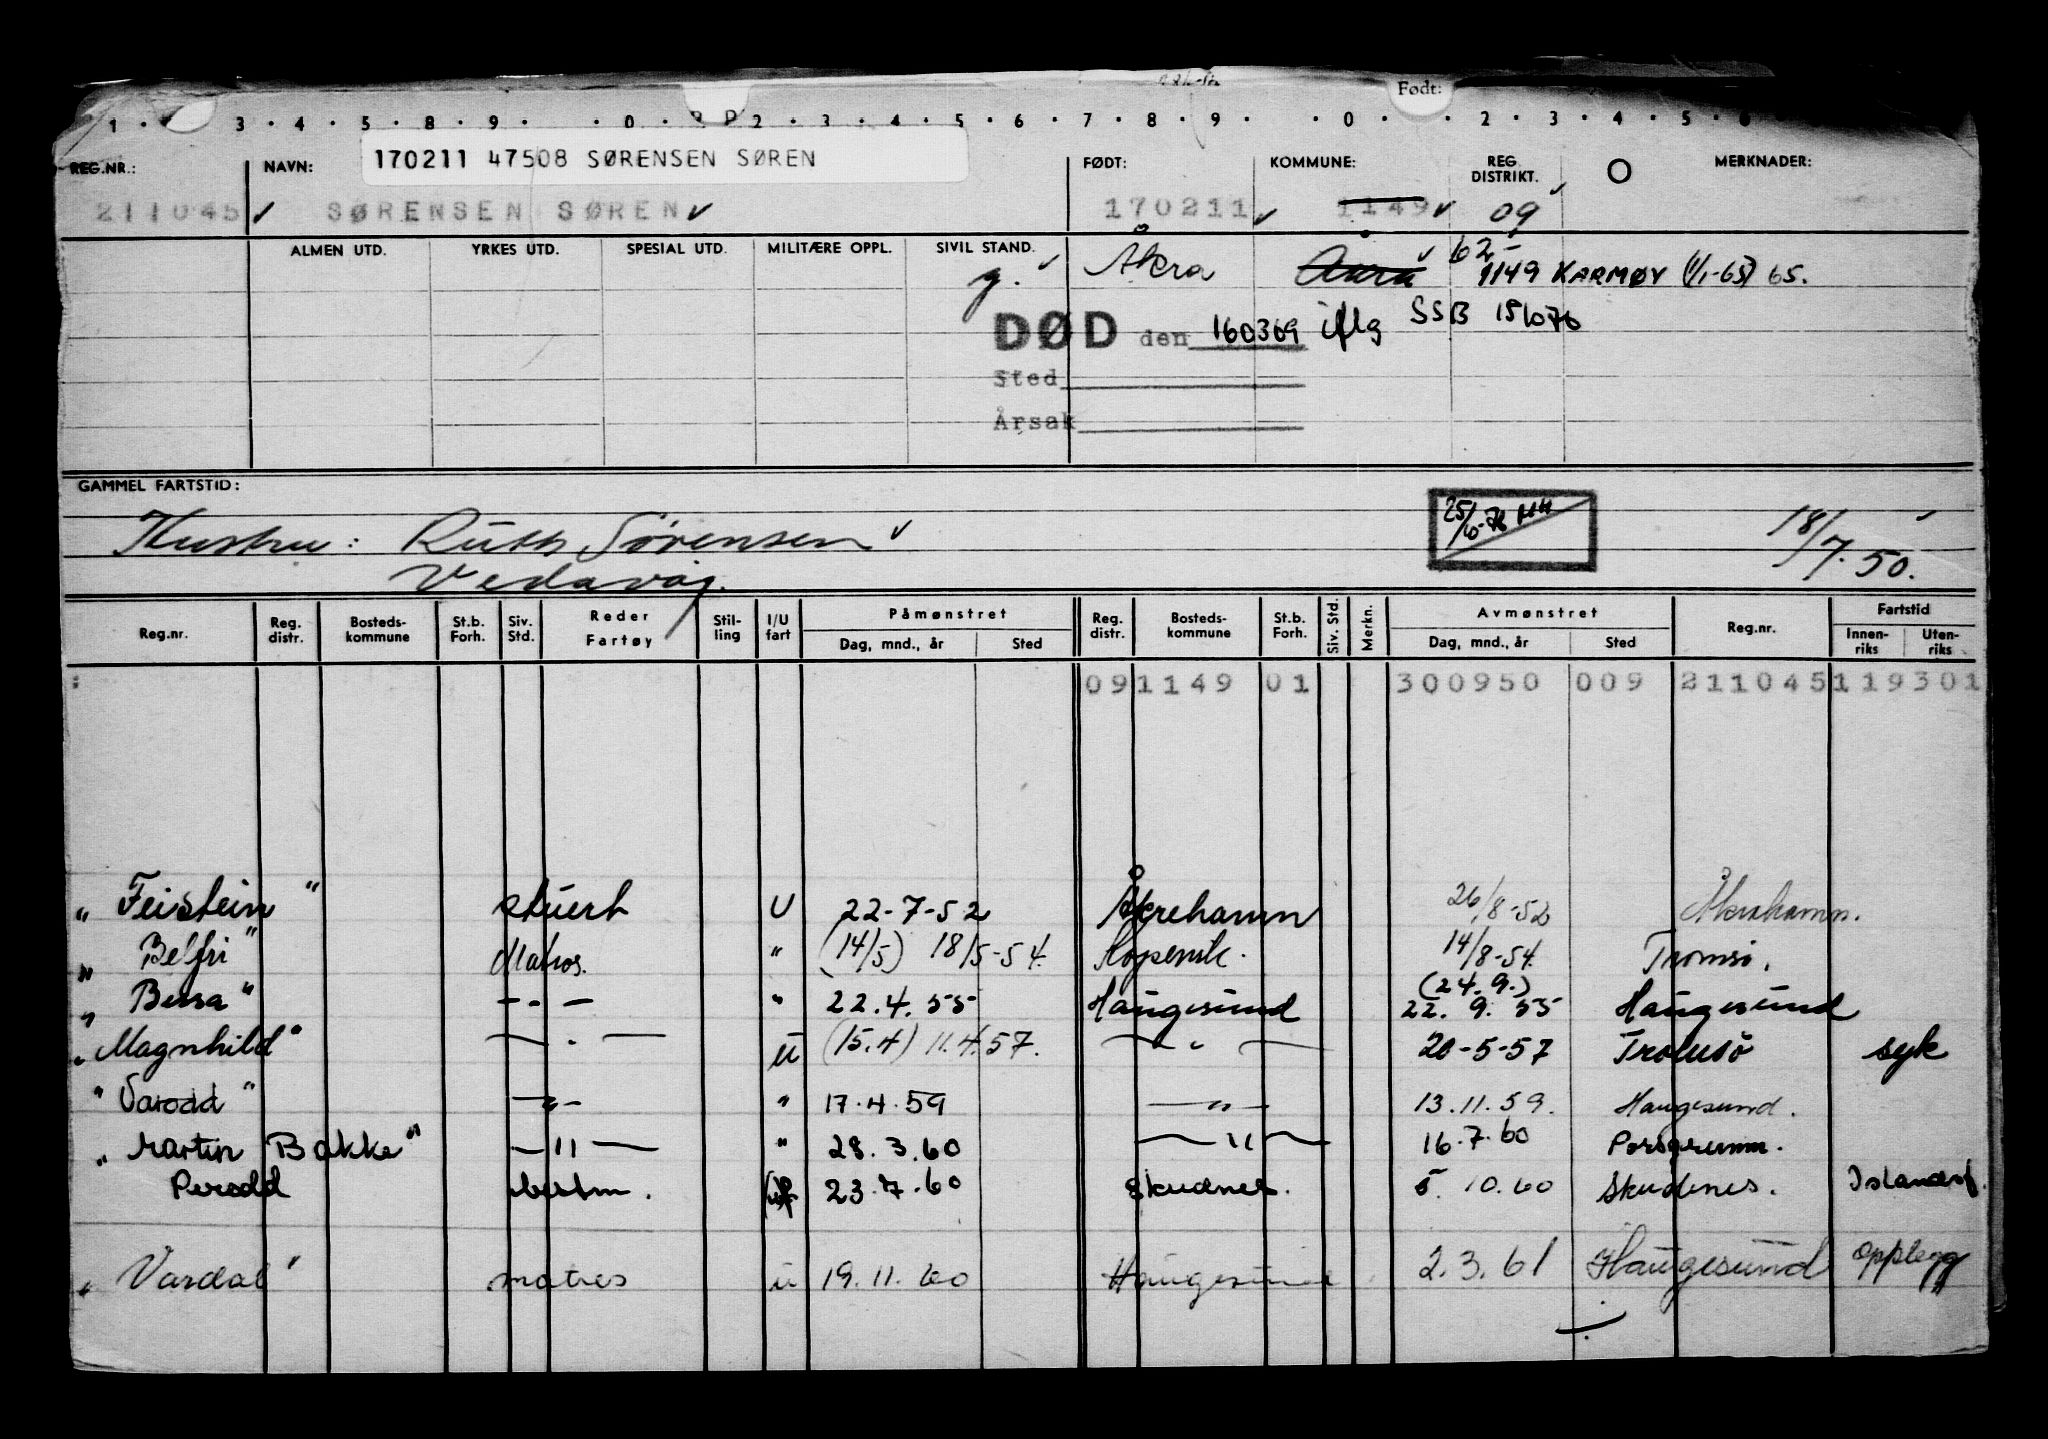 Født:
1 · 3 · 4 · 5 · 8 · 9 · · 0 · 2 · 3 · 4 · 5 · 6 · 7 · 8 · 9 · · 0 · · 2 · 3 · 4 · 5 · 6
170211 47508 SØRENSEN SØREN
REG.NR.: NAVN: FØDT: KOMMUNE: REG. DISTRIKT. O MERKNADER:
211045 SØRENSEN SØREN 170211 1149 09
ALMEN UTD. YRKES UTD. SPESIAL UTD. MILITÆRE OPPL. SIVIL STAND.
g. Åkra Åkra 62 1149 KARMØY (1/1-65) 65.
DØD den 160369 iflg SSB 151070
Sted
Årsak
GAMMEL FARTSTID:
Hustru: Ruth Sørensen 18/7.50.
Vedavåg.
Reg.nr. Reg. distr. Bosteds-kommune St.b. Forh. Siv. Std. Reder Fartøy Stil-ling I/U fart Påmønstret Dag, mnd., år Sted Reg. distr. Bosteds-kommune St.b. Forh. Siv. Std. Merkn. Avmønstret Dag, mnd., år Sted Reg.nr. Fartstid Innen-riks Uten-riks
091149 01 300950 009 211045 119301
" Feistein " stuert U 22-7-52 Åkrehamn 26/8-52 Åkrehamn.
" Belfri " Matros. " (14/5) 18/5-54. Kopervik. 14/8-54. Tromsø.
(24.9.)
" Bessa " -"- " 22.4.55 Haugesund 22.9.55 Haugesund
" Magnhild " -"- u (15.4) 11.4.57. -"- 20-5-57 Tromsö syk
" Varodd " -"- " 17.4.59 -"- 13.11.59. Haugesund.
" Martin Bakke " -"- " 28.3.60 -"- 16.7.60 Porsgrunn.
Perodd bestm. 23.7.60 Skudnes. 5.10.60 Skudenes. Islandsf.
" Vardal " matros u 19.11.60 Haugesund 2.3.61 Haugesund opplegg